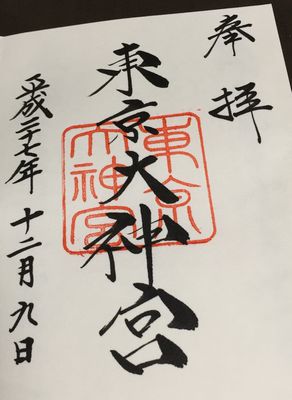 奉拝
東京大神宮
東京大神宮
平成二十七年十二月九日